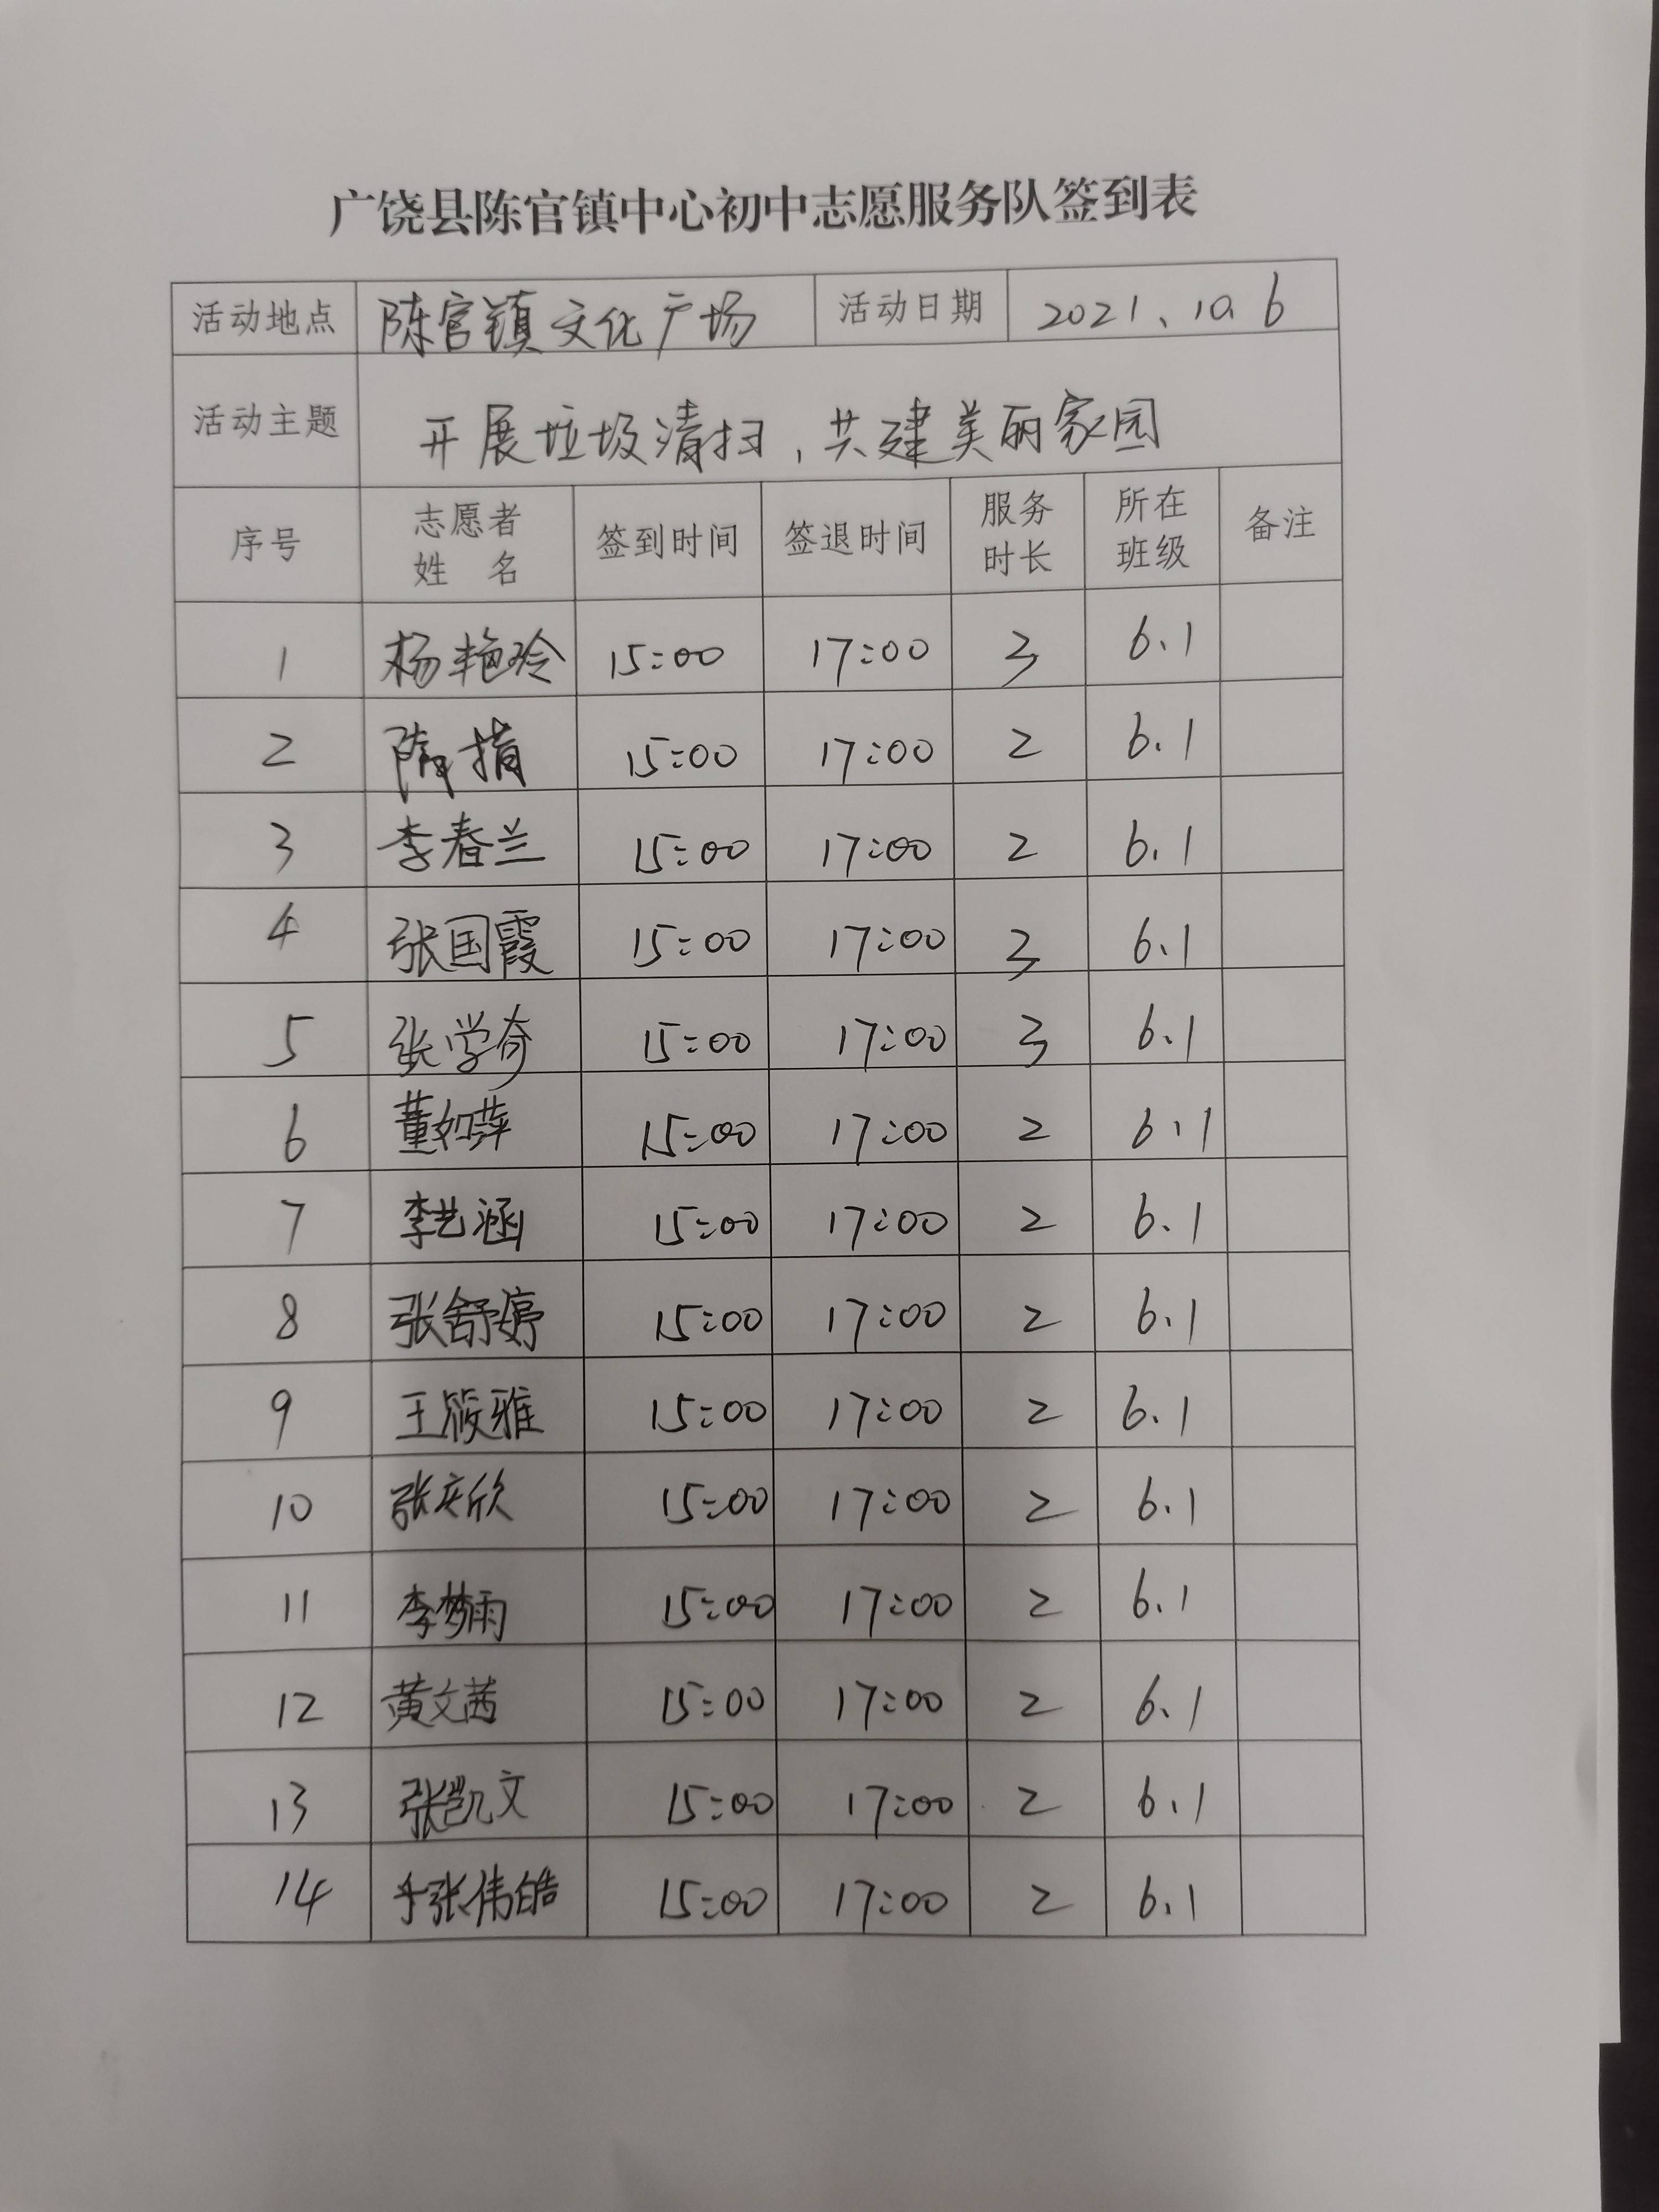 广饶县陈官镇中心初中志愿服务队签到表
活动地点 陈官镇文化广场 活动日期 2021、10.6
活动主题 开展垃圾清扫，共建美丽家园
序号 志愿者姓名 签到时间 签退时间 服务时长 所在班级 备注
1 杨艳玲 15:00 17:00 3 6.1
2 隋 15:00 17:00 2 6.1
3 李春兰 15:00 17:00 2 6.1
4 张国霞 15:00 17:00 3 6.1
5 张学奇 15:00 17:00 3 6.1
6 董如萍 15:00 17:00 2 6.1
7 李艺涵 15:00 17:00 2 6.1
8 张舒婷 15:00 17:00 2 6.1
9 王筱雅 15:00 17:00 2 6.1
10 15:00 17:00 2 6.1
11 李梦雨 15:00 17:00 2 6.1
12 黄文茜 15:00 17:00 2 6.1
13 张凯文 15:00 17:00 2 6.1
14 15:00 17:00 2 6.1